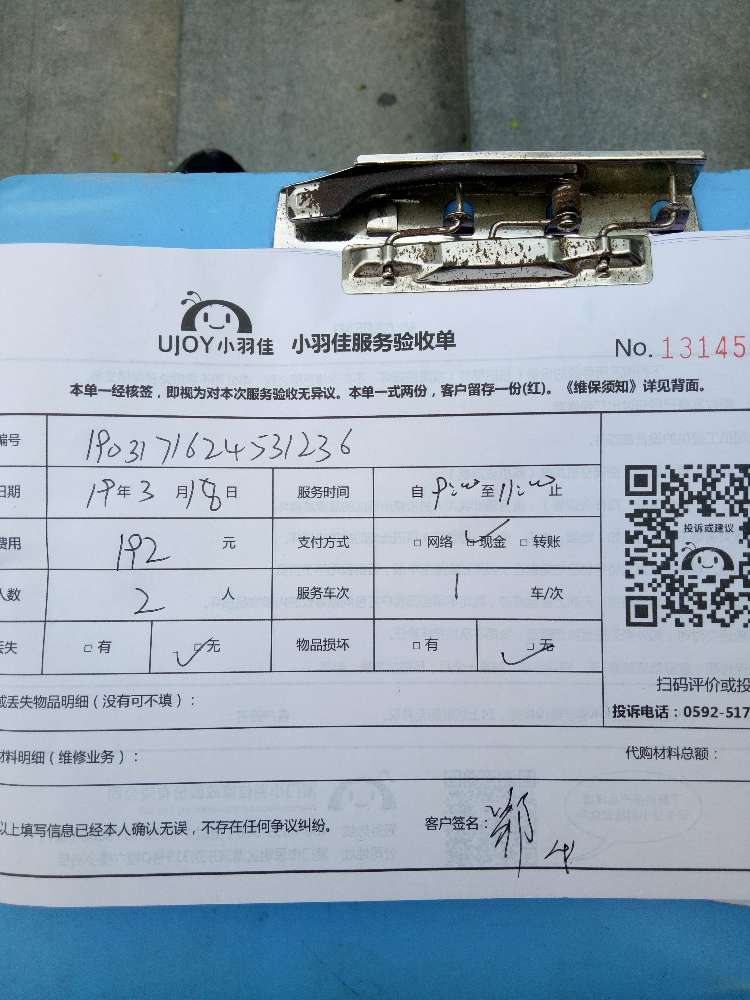 UJOY小羽佳 小羽佳服务验收单
No. 13145
本单一经核签，即视为对本次服务验收无异议。本单一式两份，客户留存一份(红)。《维保须知》详见背面。
编号 1903171624531236
日期 19年3月18日 服务时间 自9:00至11:00止
费用 192 元 支付方式 □网络 ☑现金 □转账
人数 2 人 服务车次 1 车/次
丢失 □有 ☑无 物品损坏 □有 ☑无
投诉或建议
扫码评价或投
投诉电话：0592-517
或丢失物品明细（没有可不填）：
材料明细（维修业务）： 代购材料总额：
以上填写信息已经本人确认无误，不存在任何争议纠纷。 客户签名：